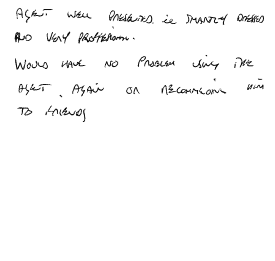 AGENT WELL PRESENTED ie SMARTLY DRESSED
AND VERY PROFESSIONAL.
WOULD HAVE NO PROBLEM USING THE
AGENT AGAIN OR RECOMMENDING HIM
TO FRIENDS